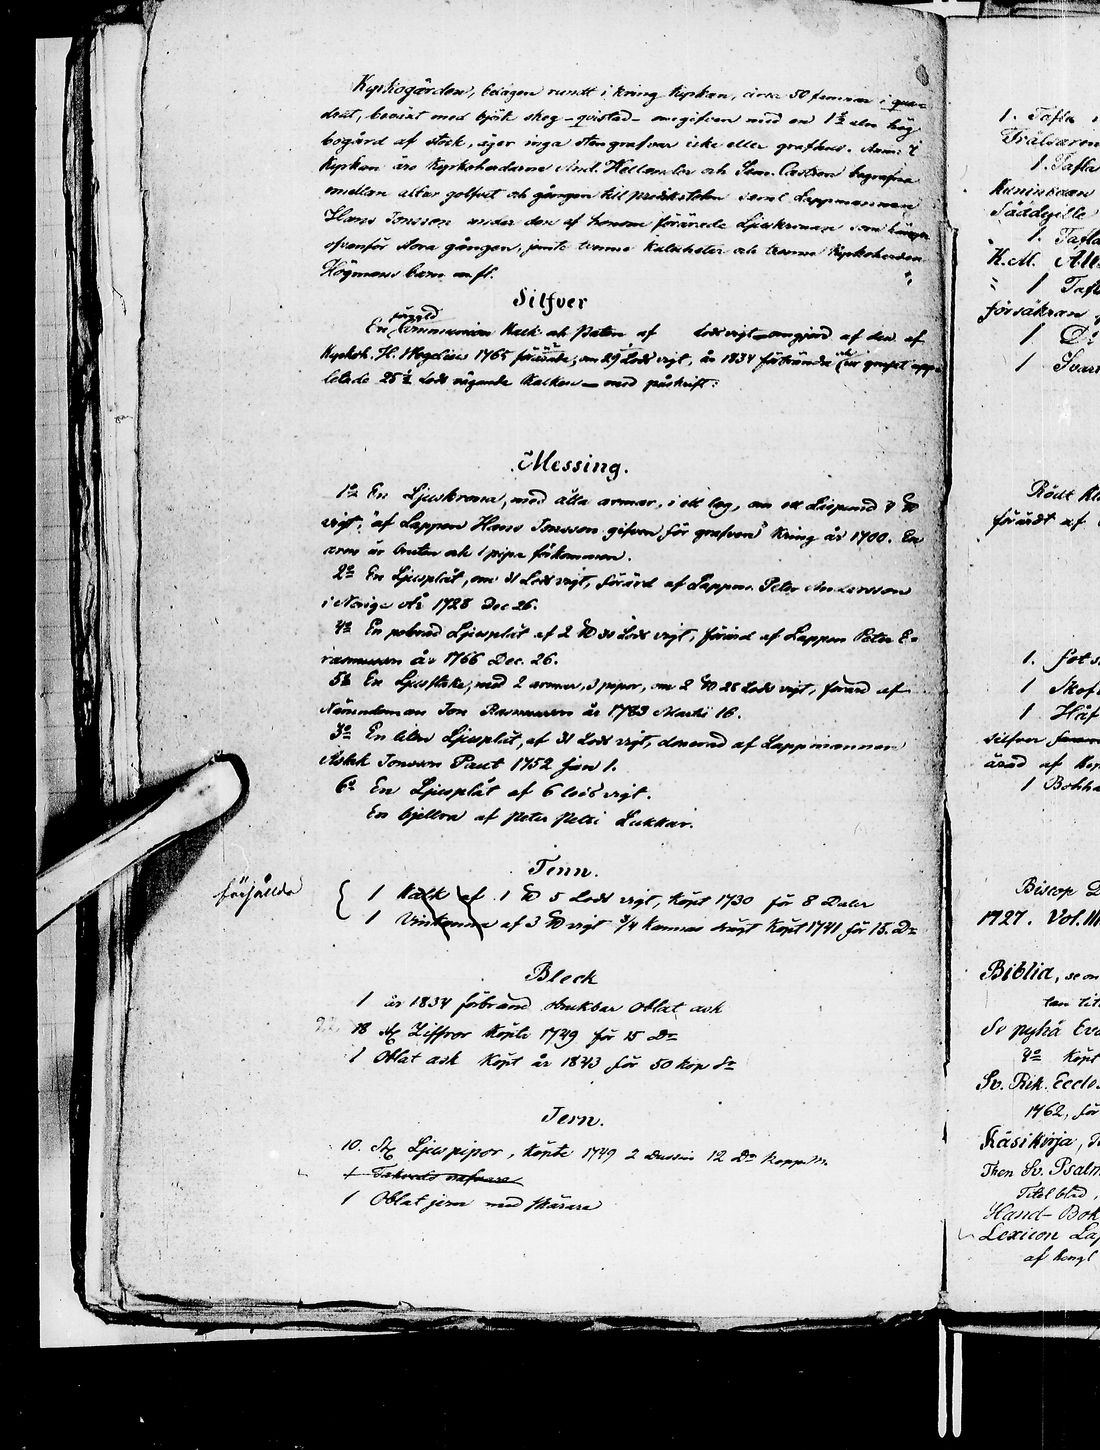 Kyrkogården, belägen rundt i kring Kyrkan, circa 50 famnar i qua-
drat, beväxt med björk skog - qvistad - omgifven med en 1½ aln hög
bogård af stock, äger inga sten grafvar icke eller grafhus. Anm: I
Kyrkan äro Kyrkoherdarne And. Hellander och Sam. Castren begrafna
emellan altar golfvet och gången till predikstolen samt Lappmannen
Hans Jonsson under den af honom förärade Ljuskronan som hänger
ofvanför stora gången, jemte tvenne Kateketer och tvenne Kyrkoherden
Högmans barn m. fl.
Silfver
förgyld
En Communion Kalk och Paten, af Lods vigt omgjord af den af
Kyrkoh. H. Hegelius 1765 förärade, om 29 Lods vigt, år 1834 förbrända
25½ Lods vägande Kalken — med påskrift:
Messing.
1o En Ljuskrona, med åtta armar, i ett lag, om ett Lispund
vigt, "af Lappen Hans Jonsson gifven för grafven" Kring år 1700. En
arm är bruten och 1 pipa förkommen.
2o En Ljusplåt, om 31 Lods vigt, förärd af Lappen Peter Andersson
i Norige År 1728 Dec 26.
4o En Ljusplåt af 2 ℔ 30 Lods vigt, förärd af Lappen Peter E-
rasmusson år 1766 Dec. 26.
5o En Ljusstake, med 2 armar, 3 pipor, om 2 ℔ 28 Lods vigt, förärd af
Nämndeman Jon Rasmusson år 1783 Martii 16.
3o En liten Ljusplåt, af 31 Lods vigt, donerad af Lappmannen
Aslak Jonsson Paut 1752 Jan 1.
6o En Ljusplåt af 6 lods vigt.
En bjellra af Peter Petri Lukkar.
Tenn.
försållda
1 Kalk af 1 ℔ 5 Lods vigt, köpt 1730 för 8 Daler
1 Vinkanna af 3 ℔ vigt 3/4 Kannas drägt Köpt 1741 för 15. Dr
Bleck
1 år 1834 förbränd obrukbar Oblat ask
18 st Ziffror Köpte 1749 för 15 Dr
1 Oblat ask Köpt år 1843 för 50 kop Sr
Jern.
10. st Ljuspipor, köpte 1749 2 Dussin 12 Dr Kopp m.
1 Oblat jern med skärare
1. Tafla
Frälsaren
1. Tafla
Kuninkaan
Säädyille
1. Tafla
K. M. All
1 Tafl
försäkran
1 Do
1 Svar
Rödt Kl
förärdt af
1.
1 Skof
1 Håf
silfver
ärad af
1
Biscop
1727. Vol. III
Biblia,
tan tit
Se pyhä Eva
4o Köpt
Sv. Rik. Eccles.
1762, för
Käsikirja,
Then Sv. Psalm
Titel blad,
Hand-Bok
Lexicon Lap
af Kongl